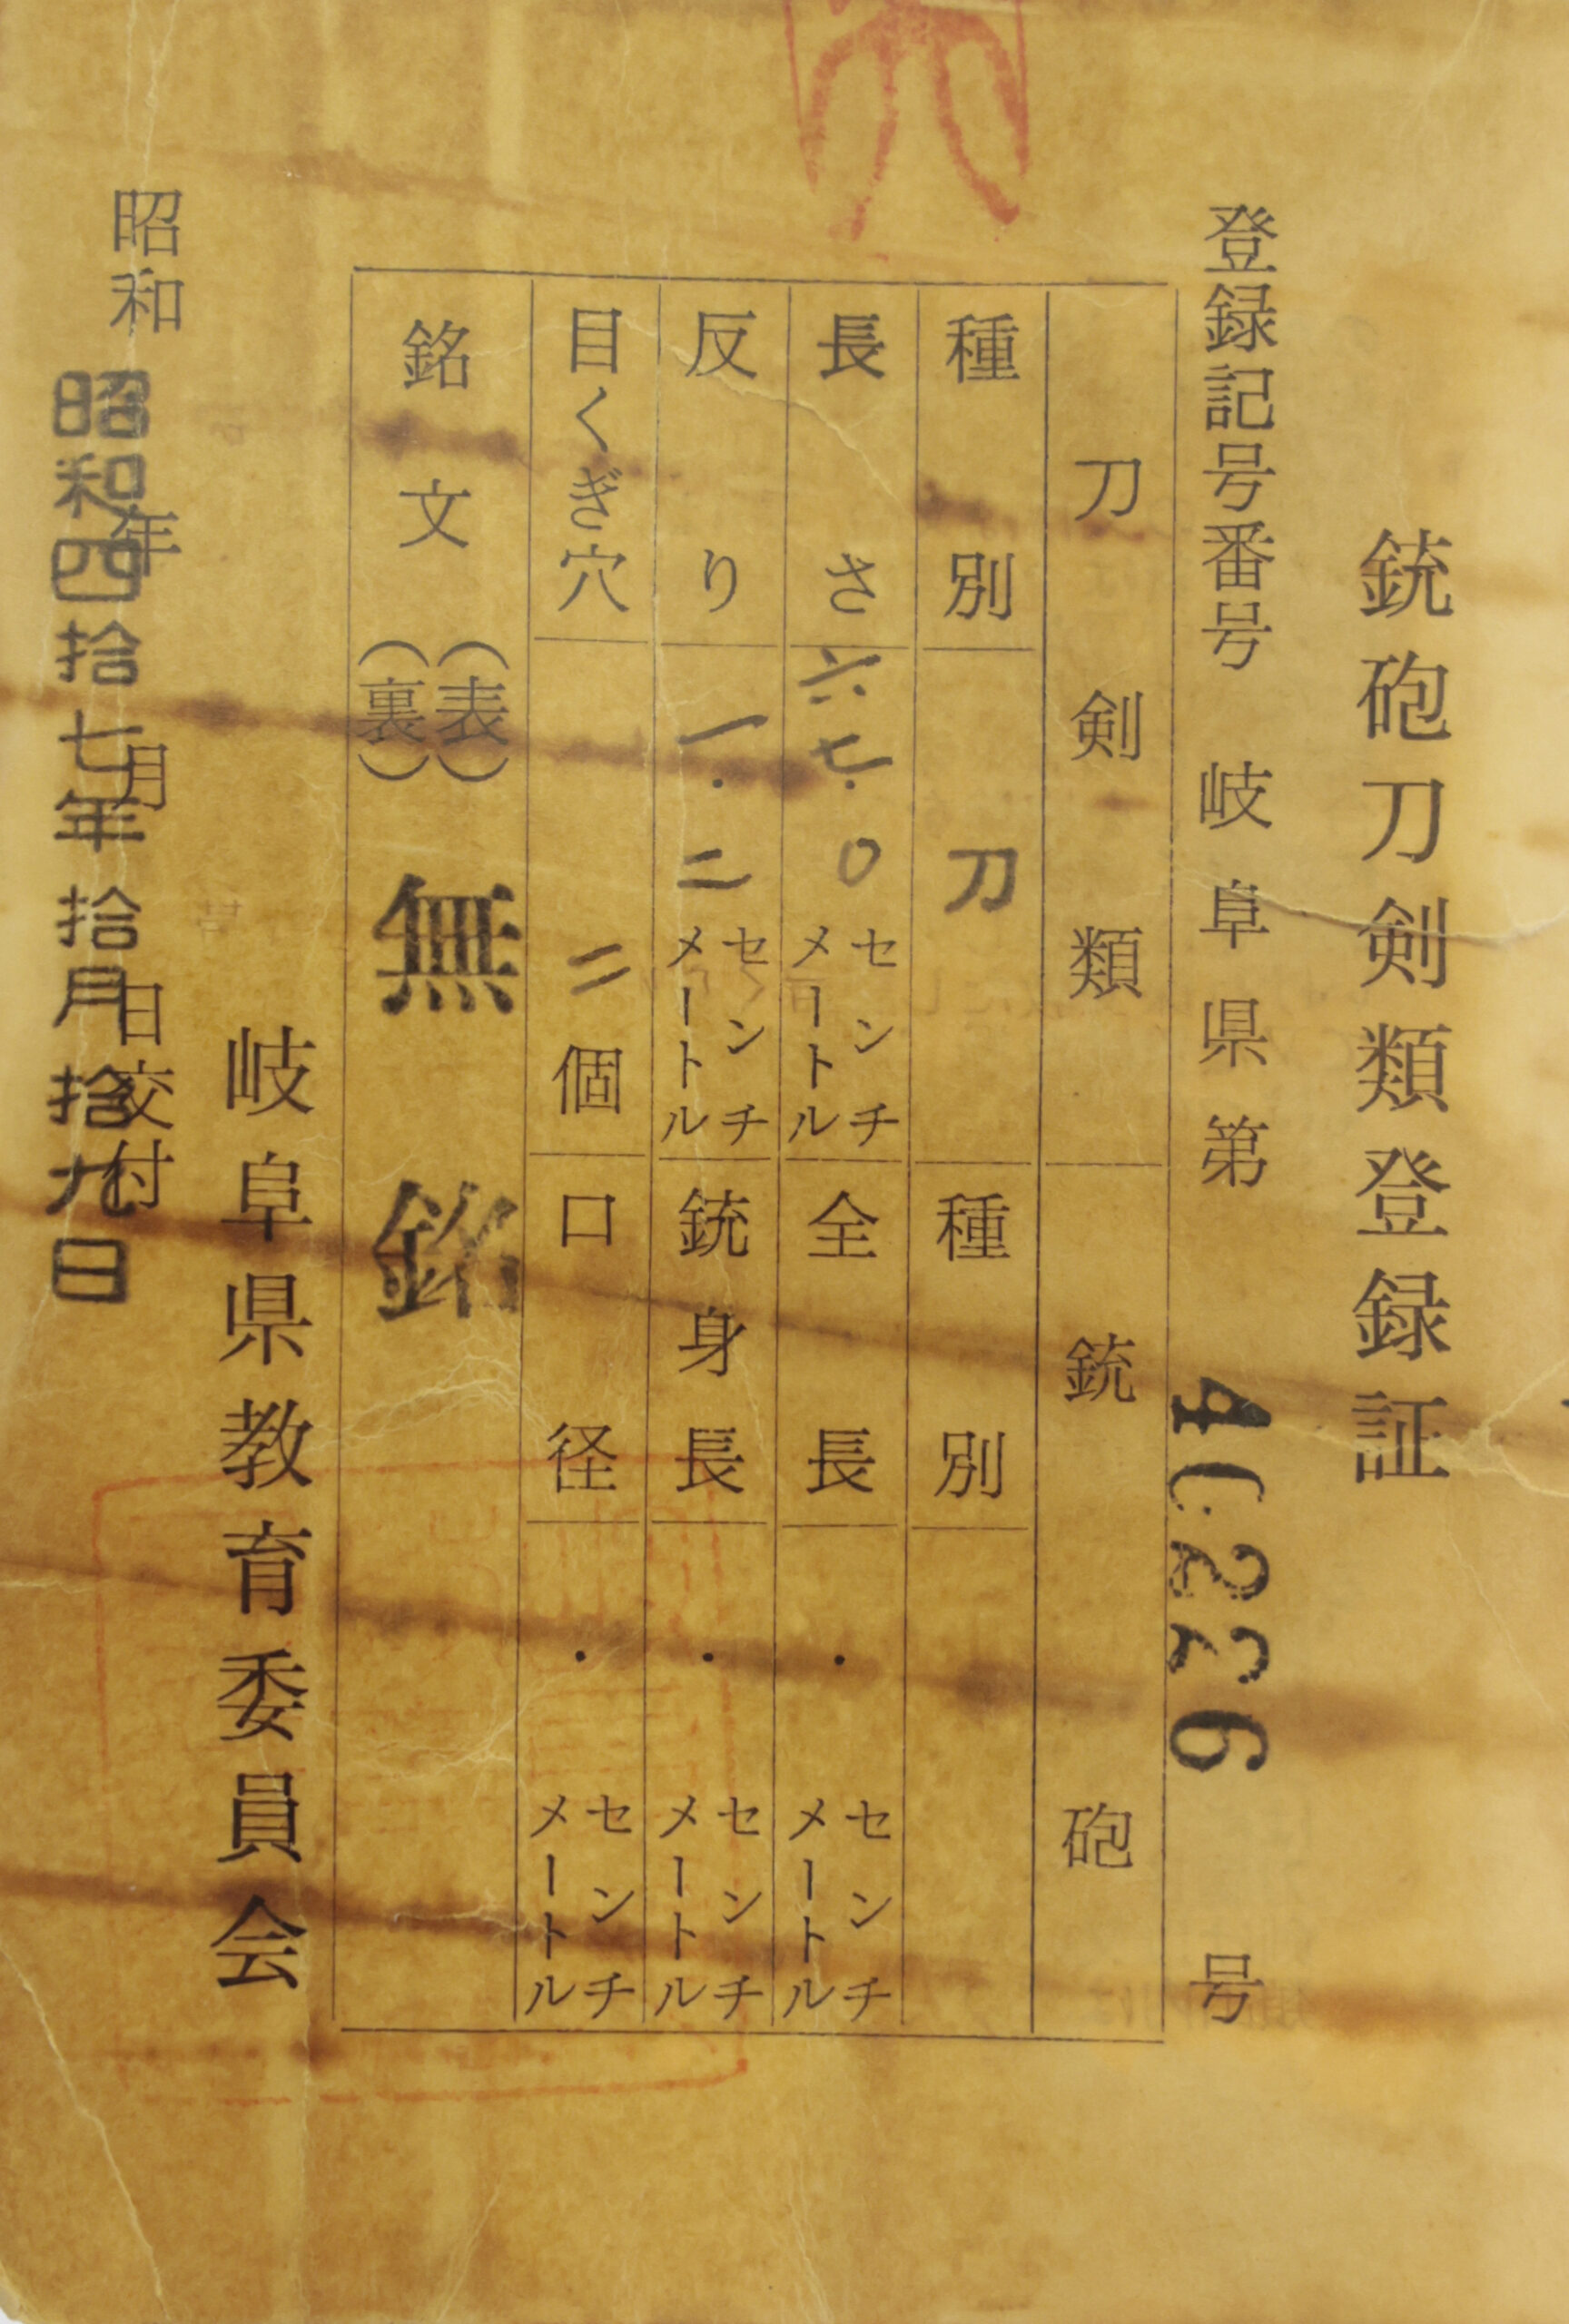 銃砲刀剣類登録証
登録記号番号 岐阜県第 40236 号
刀剣類 銃砲
種別 刀 種別
長さ 六七.〇 センチメートル 全長 . センチメートル
反り 一.二 センチメートル 銃身長 . センチメートル
目くぎ穴 二個 口径 . センチメートル
銘文 (表) (裏) 無銘
岐阜県教育委員会
昭和 年 月 日交付
昭和四拾七年拾月拾九日